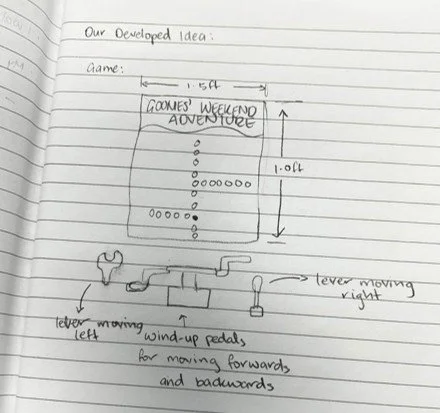 Our Developed Idea:
Game:
1.5ft
GOONIES' WEEKEND
ADVENTURE
1.0ft
lever moving
right
lever moving
left
wind-up pedals
for moving forwards
and backwards